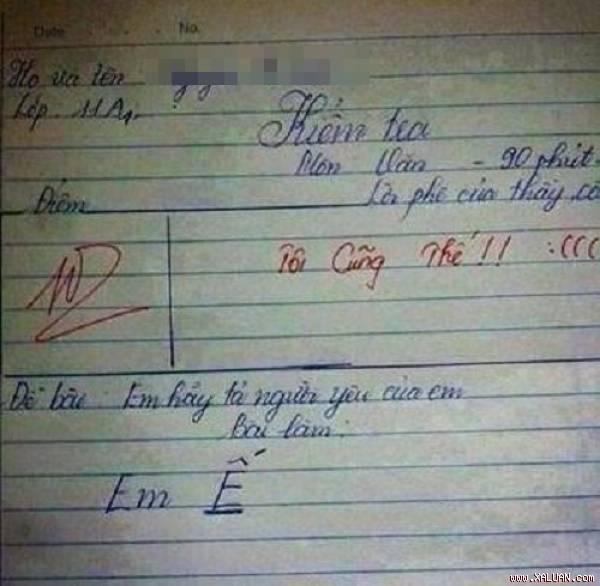 Date No.
Họ và tên
Lớp 11A1.
Kiểm tra
Môn Văn - 90 phút.
Điểm Lời phê của thầy, cô
10 Tôi Cũng Thế!! :(((
Đề bài: Em hãy tả người yêu của em
Bài làm:
Em Ế
www.XALUAN.com